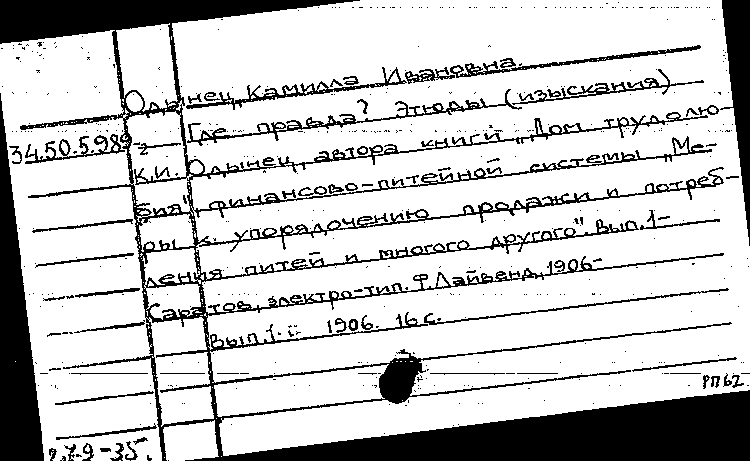 Одынец, Камилла Ивановна.
34.50.5.989 2 Где правда? Этюды (изыскания)
К.И. Одынец, автора книги „Дом трудолю-
бия", финансово-питейной системы „Ме-
ры к упорядочению продажи и потреб-
ления питей и многого другого". Вып.1-
Саратов, электро-тип. Ф. Лайвенд, 1906-
Вып.1. 1906. 16 с.
РП62